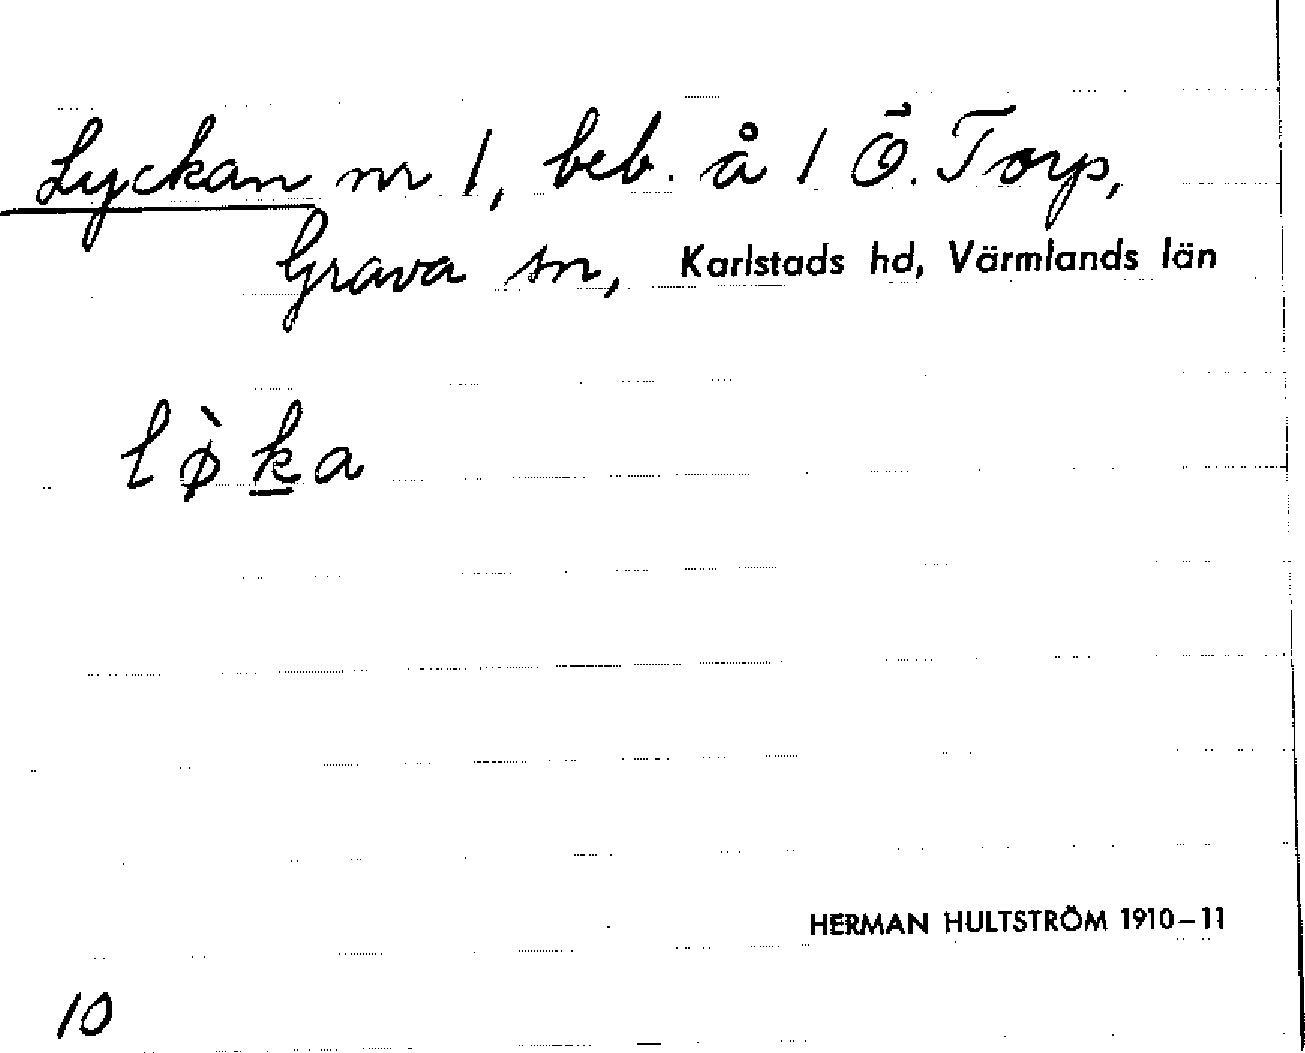 Lyckan nr 1, beb. å 1 Ö. Torp,
Grava sn, Karlstads hd, Värmlands län
lø̀k̲a
HERMAN HULTSTRÖM 1910–11
10